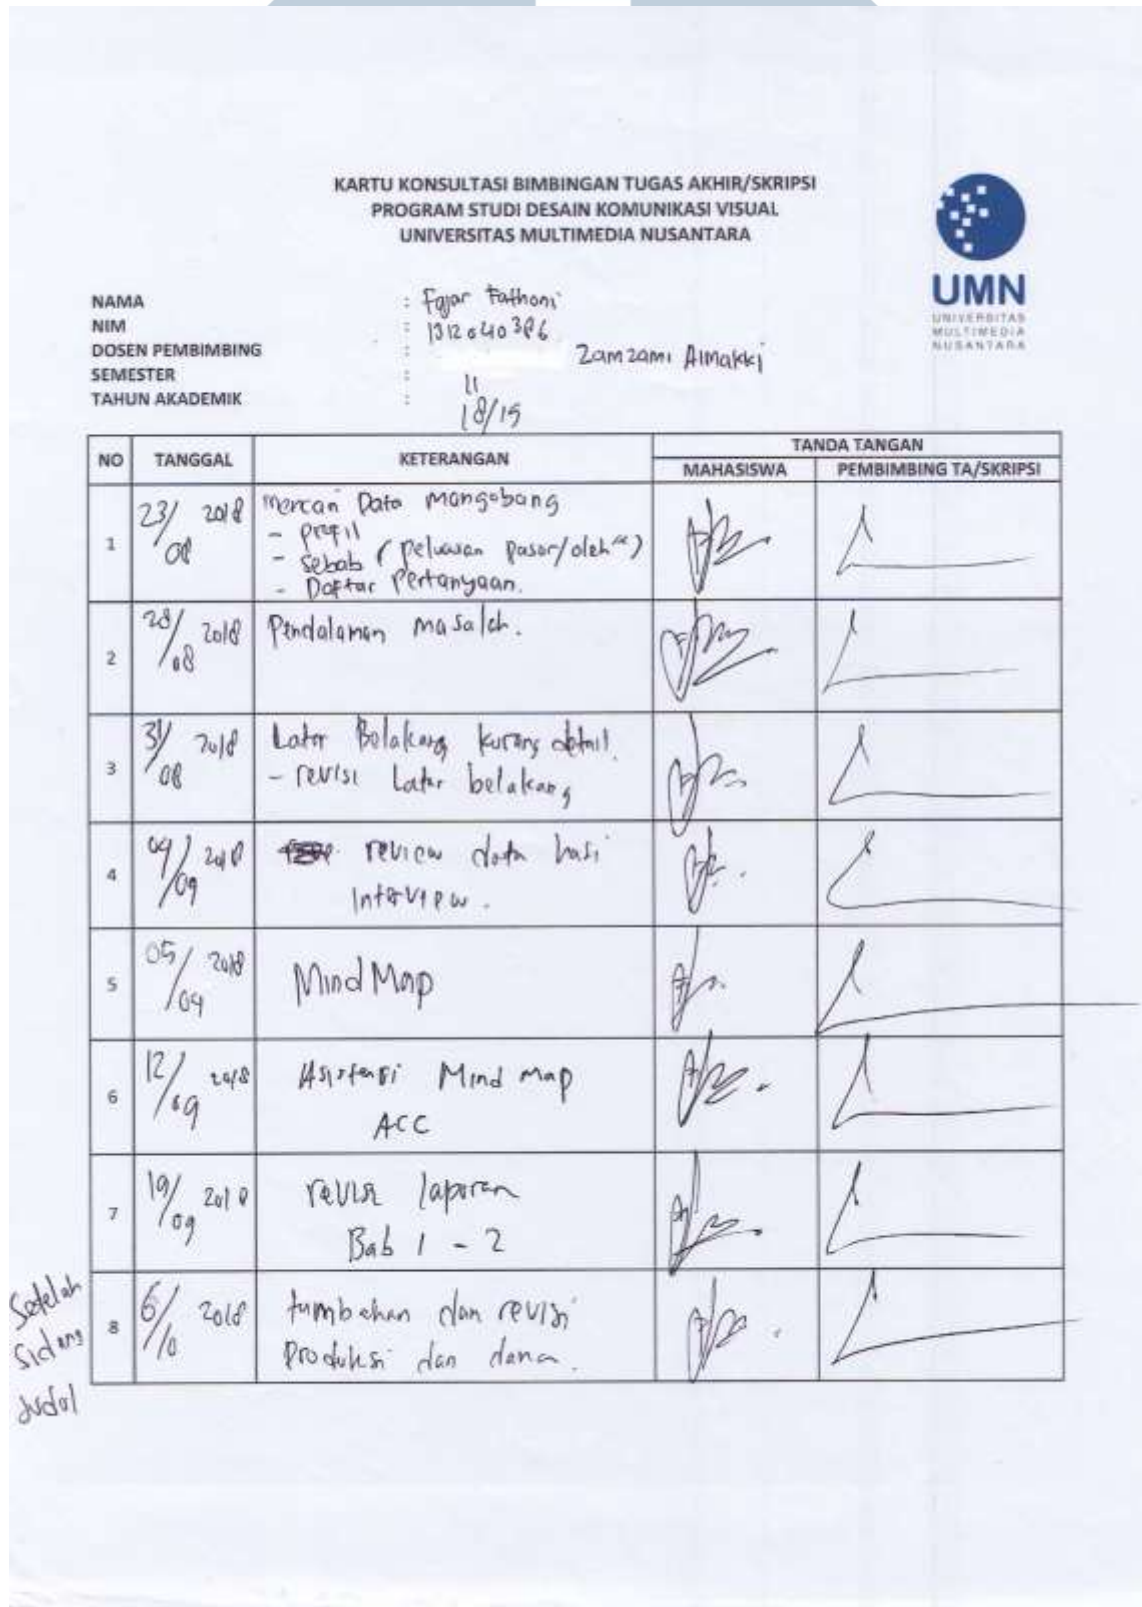 KARTU KONSULTASI BIMBINGAN TUGAS AKHIR/SKRIPSI
PROGRAM STUDI DESAIN KOMUNIKASI VISUAL
UNIVERSITAS MULTIMEDIA NUSANTARA
UMN
UNIVERSITAS
MULTIMEDIA
NUSANTARA
NAMA : Fajar Fathoni
NIM :
DOSEN PEMBIMBING : Zamzami Almakki
SEMESTER : 11
TAHUN AKADEMIK : 18/19
NO TANGGAL KETERANGAN TANDA TANGAN
MAHASISWA PEMBIMBING TA/SKRIPSI
1 23/08 2018 Mencari Data Mangobang
- profil
- sebab (peluasan pasar/oleh")
- Daftar Pertanyaan.
2 28/08 2018 Pendalaman masalah.
3 31/08 2018 Latar Belakang kurang detail.
- revisi Latar belakang
4 04/09 2018 review data hasi
Interview.
5 05/09 2018 Mind Map
6 12/09 2018 Asistensi Mind map
ACC
7 19/09 2018 revisi laporan
Bab 1 - 2
Setelah
Sidang
Judul
8 6/10 2018 tumbahan dan revisi
Produksi dan dana.